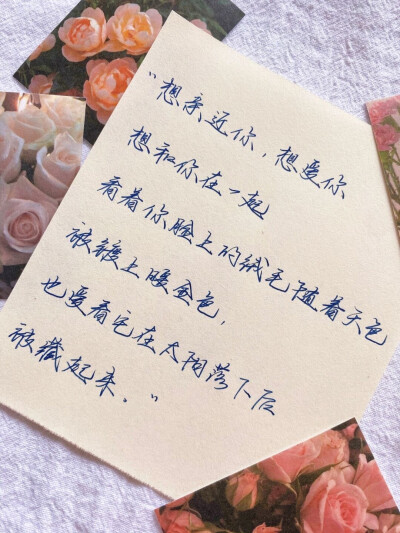 “想亲近你，想爱你
想和你在一起
看着你脸上的绒毛随着天色
被镀上暖金色，
也爱看它在太阳落下后
被藏起来.”